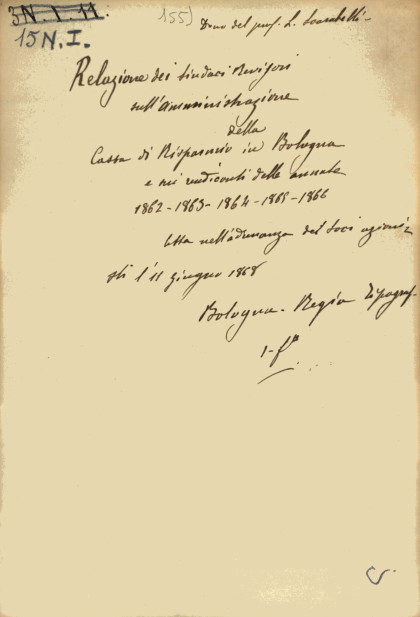 3 N. I. 11.
15 N. I.
155) Dono del prof. L. Scarabelli
Relazione dei Sindaci Revisori
sull'amministrazione
della
Cassa di Risparmio in Bologna
e sui rendiconti delle annate
1862-1863-1864-1865-1866
letta nell'adunanza dei Soci azioni-
sti l'11 giugno 1868
Bologna. Regia Tipograf.
1-f°